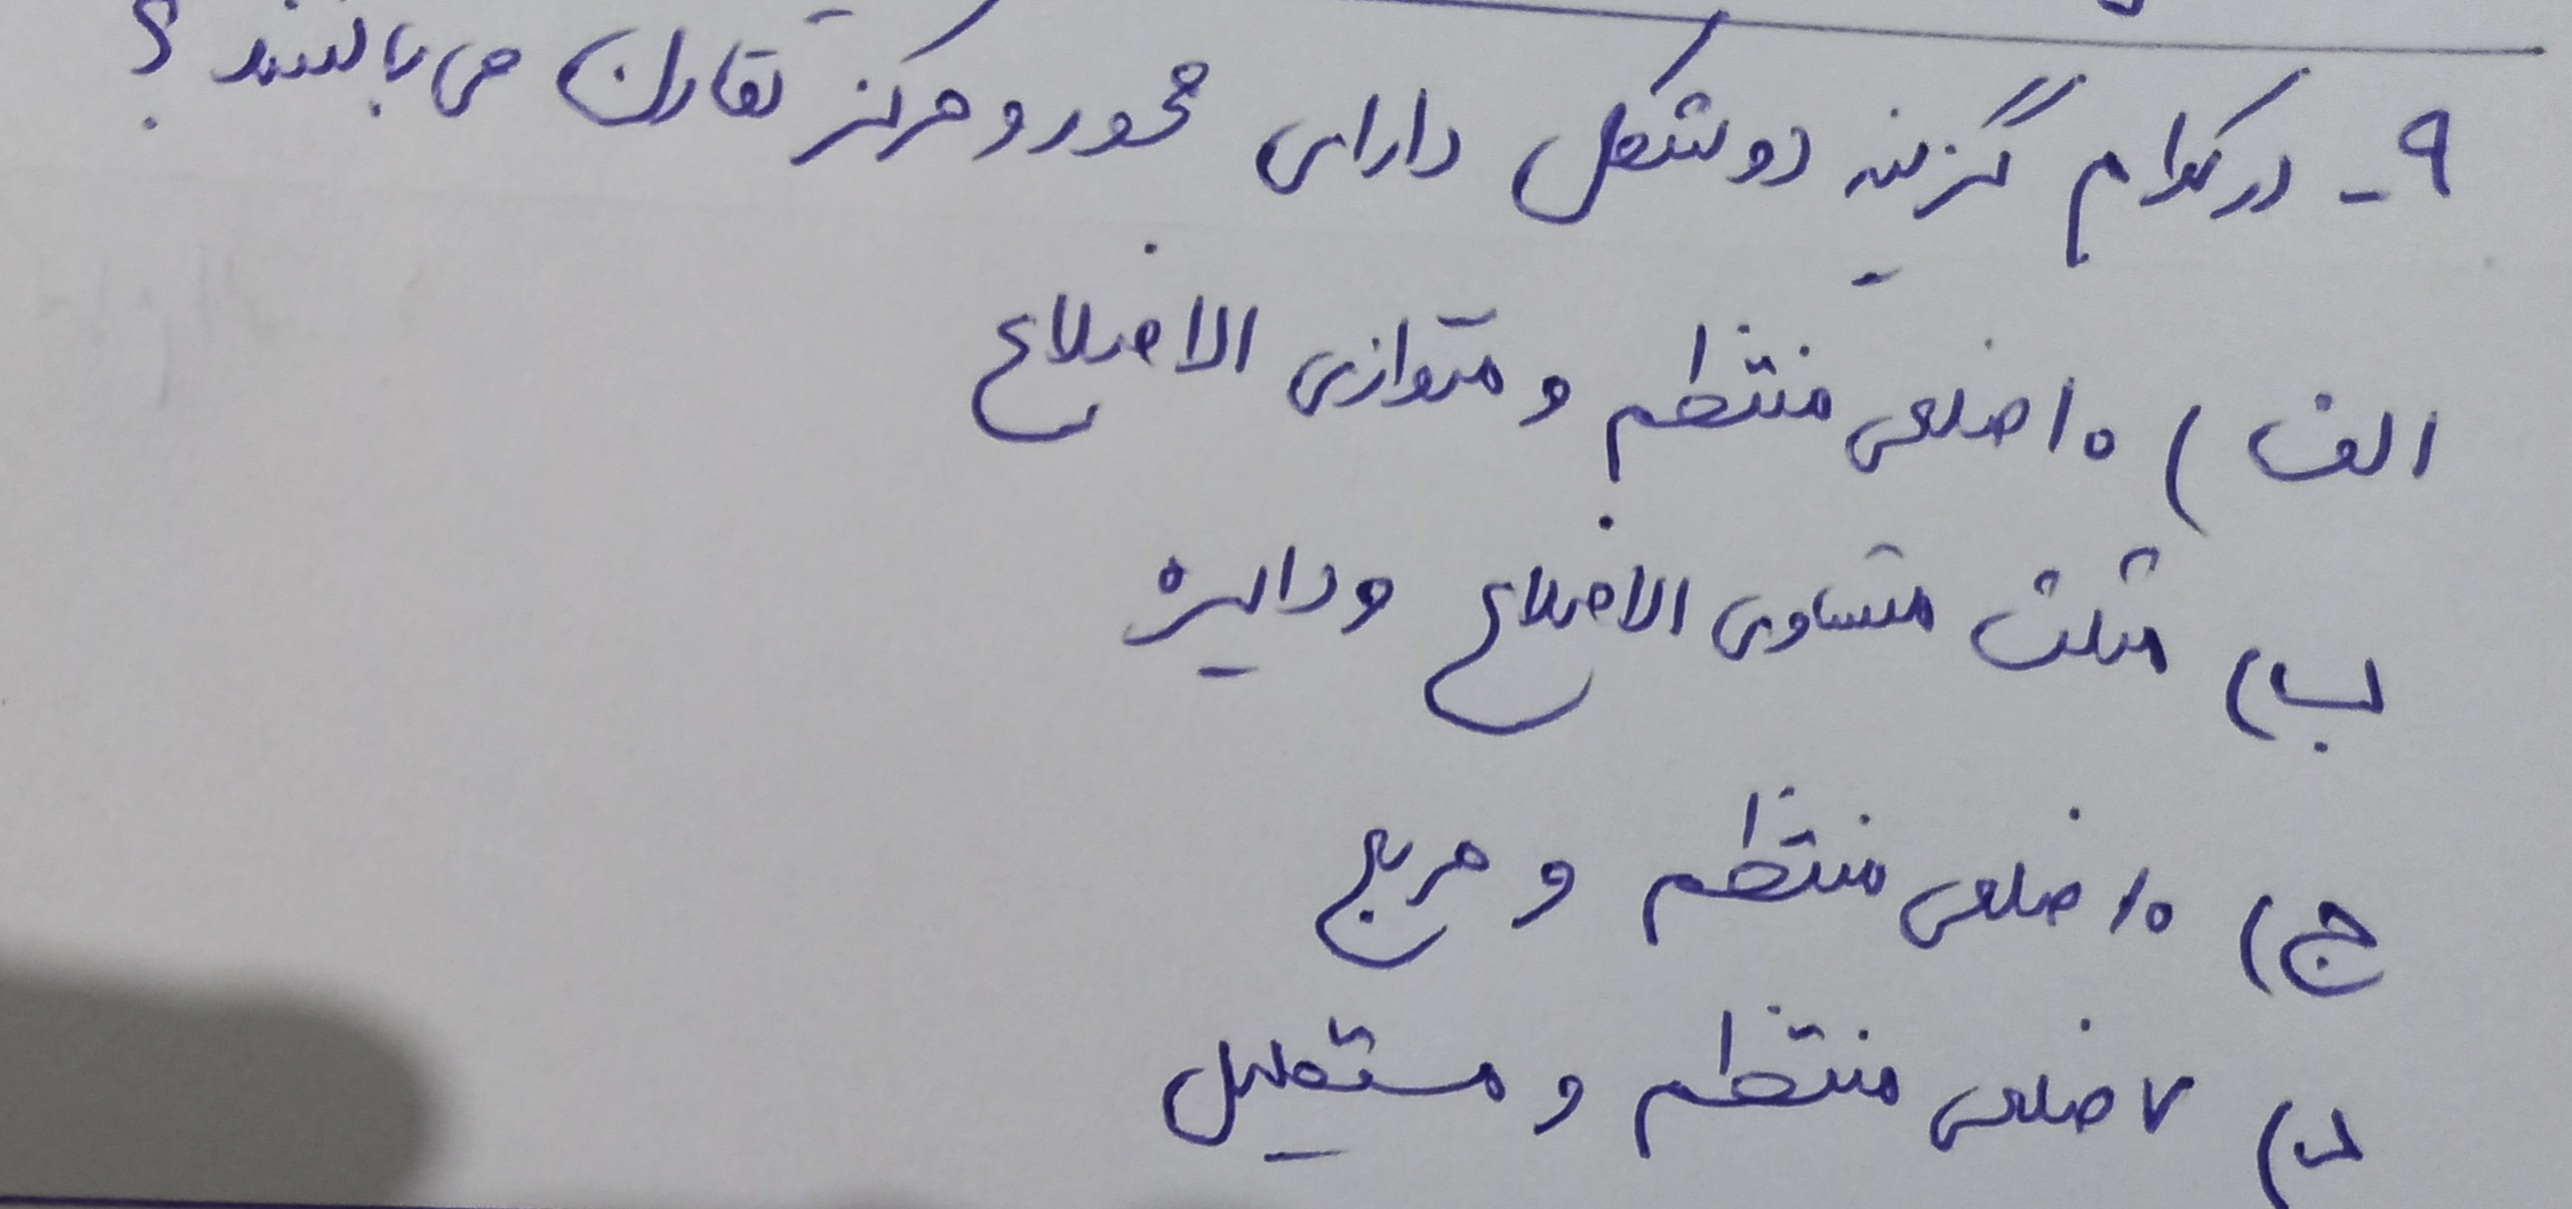 ۹- در کدام گزینه دو شکل دارای محور و مرکز تقارن می باشند؟
الف) ۱۰ ضلعی منتظم و متوازی الاضلاع
ب) مثلث متساوی الاضلاع و دایره
ج) ۱۰ ضلعی منتظم و مربع
د) ۷ ضلعی منتظم و مستطیل